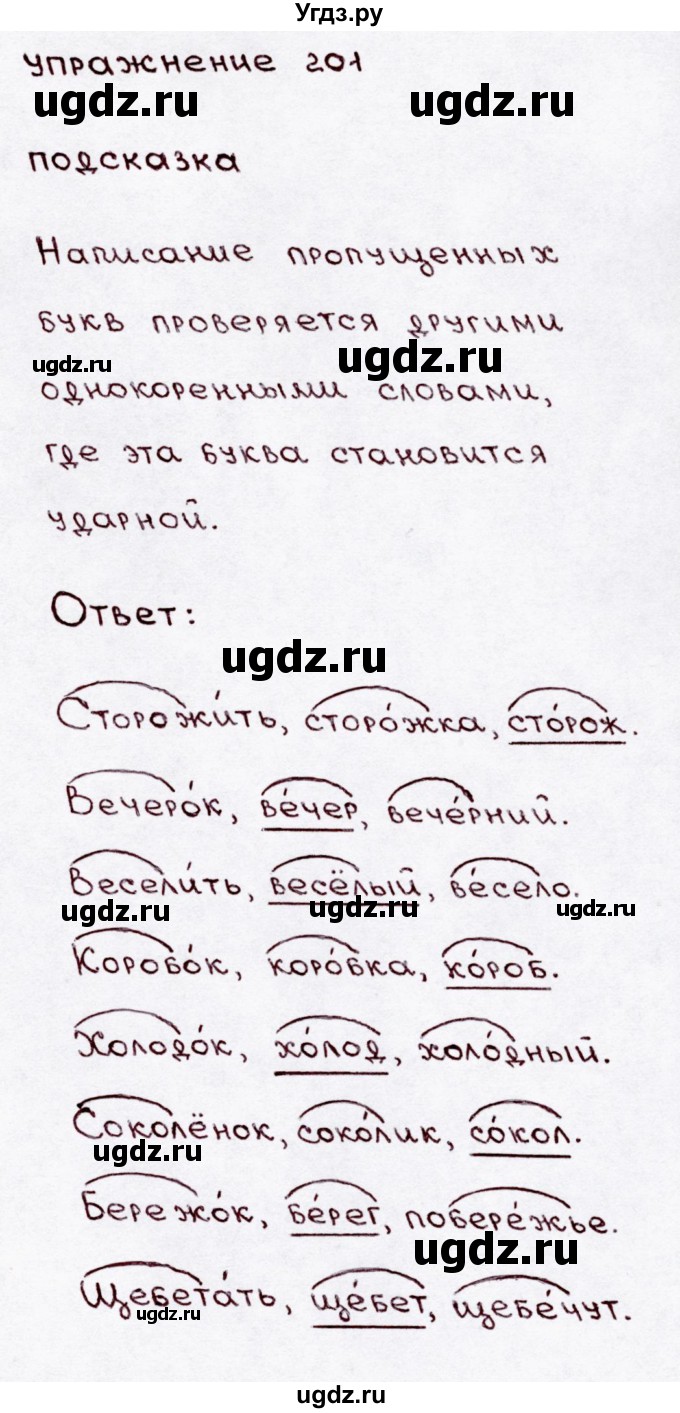 Угдз.ру
упражнение 201
ugdz.ru ugdz.ru
подсказка
Написание пропущенных
букв проверяется другими
ugdz.ru ugdz.ru
однокоренными словами,
где эта буква становится
ударной.
Ответ:
ugdz.ru
Сторожи́ть, сторо́жка, сто́рож.
Вечеро́к, ве́чер, вече́рний.
Весели́ть, весёлый, ве́село.
ugdz.ru ugdz.ru ugdz.ru
Коробо́к, коро́бка, ко́роб.
Холодо́к, хо́лод, холо́дный.
Соколёнок, соко́лик, со́кол.
ugdz.ru
Бережо́к, бе́рег, побере́жье.
ugdz.ru
Щебета́ть, ще́бет, щебе́чут.
ugdz.ru
ugdz.ru